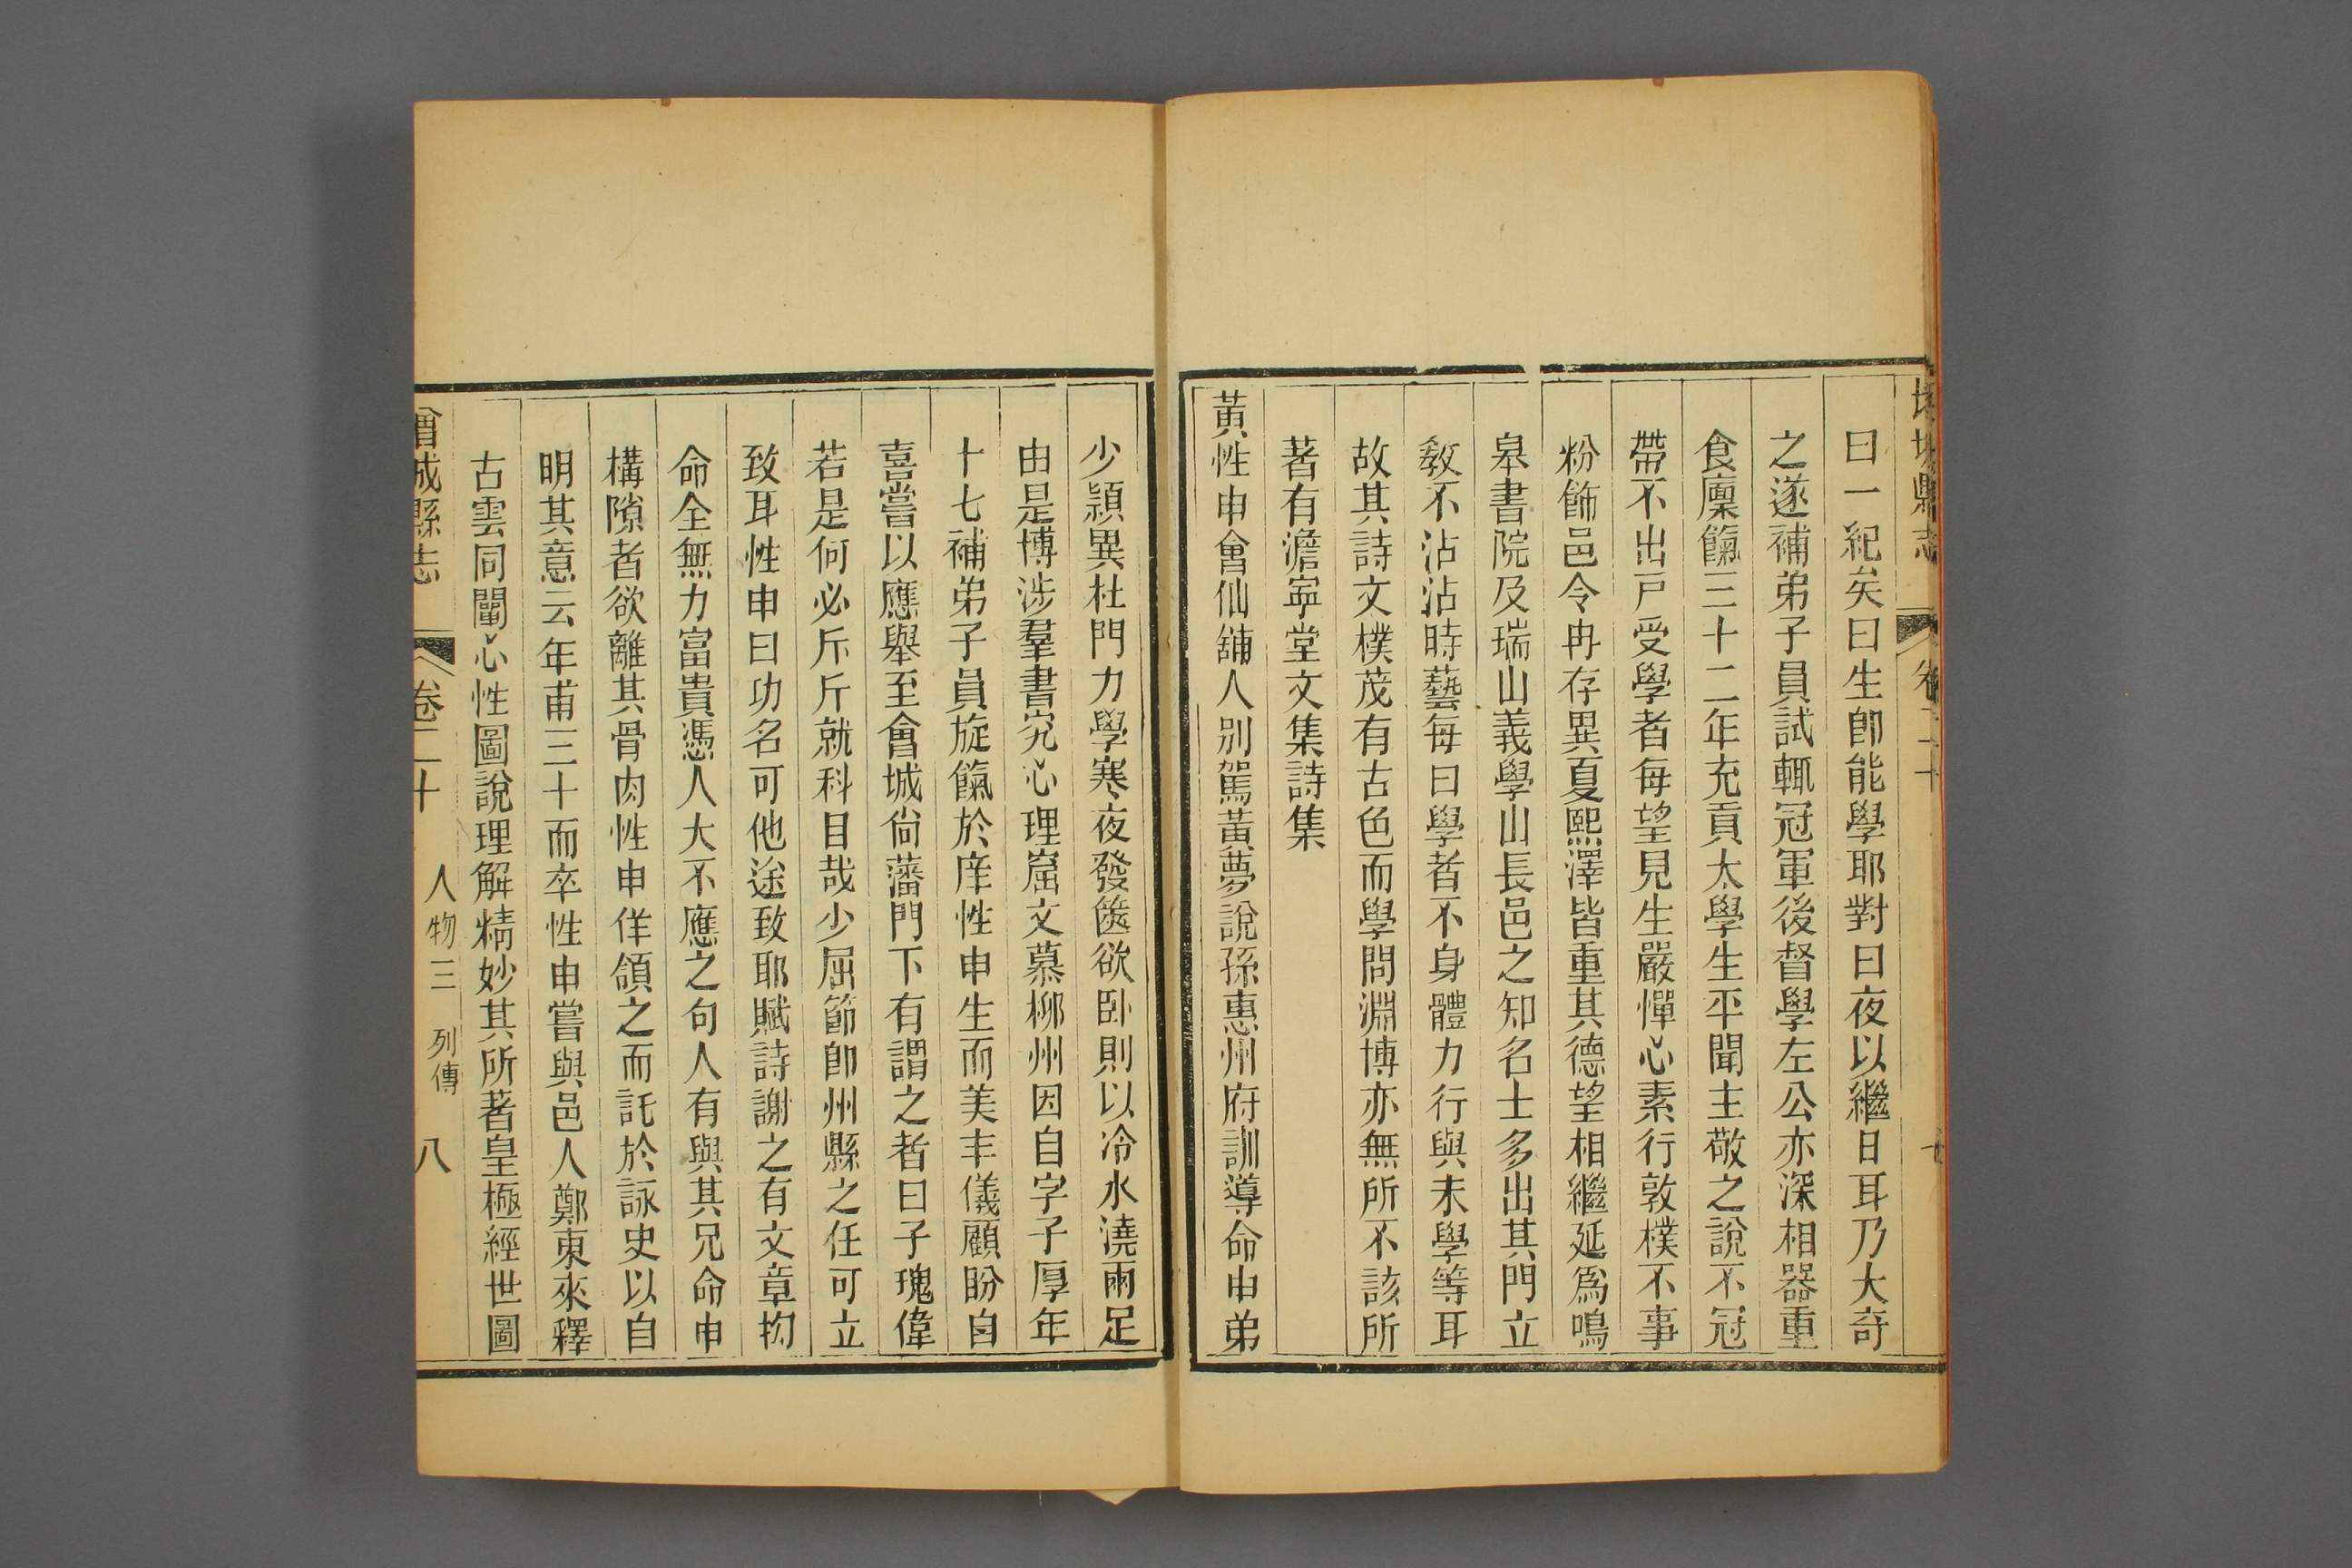 曰一紀矣曰生卽能學耶對曰夜以繼日耳乃大奇
之遂補弟子員試輒冠軍後督學左公亦深相器重
食廩餼三十二年充貢太學生平聞主敬之說不冠
帶不出戸受學者每望見生嚴憚心素行敦樸不事
粉飾邑令冉存異夏熙澤皆重其德望相繼延爲鳴
皋書院及瑞山義學山長邑之知名士多出其門立
教不沾沾時藝每曰學者不身體力行與未學等耳
故其詩文樸茂有古色而學問淵博亦無所不該所
著有澹寧堂文集詩集
黃性申會仙舖人別駕黃夢說孫惠州府訓導命申弟
少穎異杜門力學寒夜發篋欲卧則以冷水澆兩足
由是博涉羣書究心理窟文慕柳州因自字子厚年
十七補弟子員旋餼於庠性申生而美丰儀顧盼自
喜嘗以應舉至會城尙藩門下有謂之者曰子瑰偉
若是何必斤斤就科目哉少屈節卽州縣之任可立
致耳性申曰功名可他途致耶賦詩謝之有文章抝
命全無力富貴憑人大不應之句人有與其兄命申
構隙者欲離其骨肉性申佯頷之而託於詠史以自
明其意云年甫三十而卒性申嘗與邑人鄭東來釋
古雲同闡心性圖說理解精妙其所著皇極經世圖
曾城縣志 卷二十 人物三 列傳 八